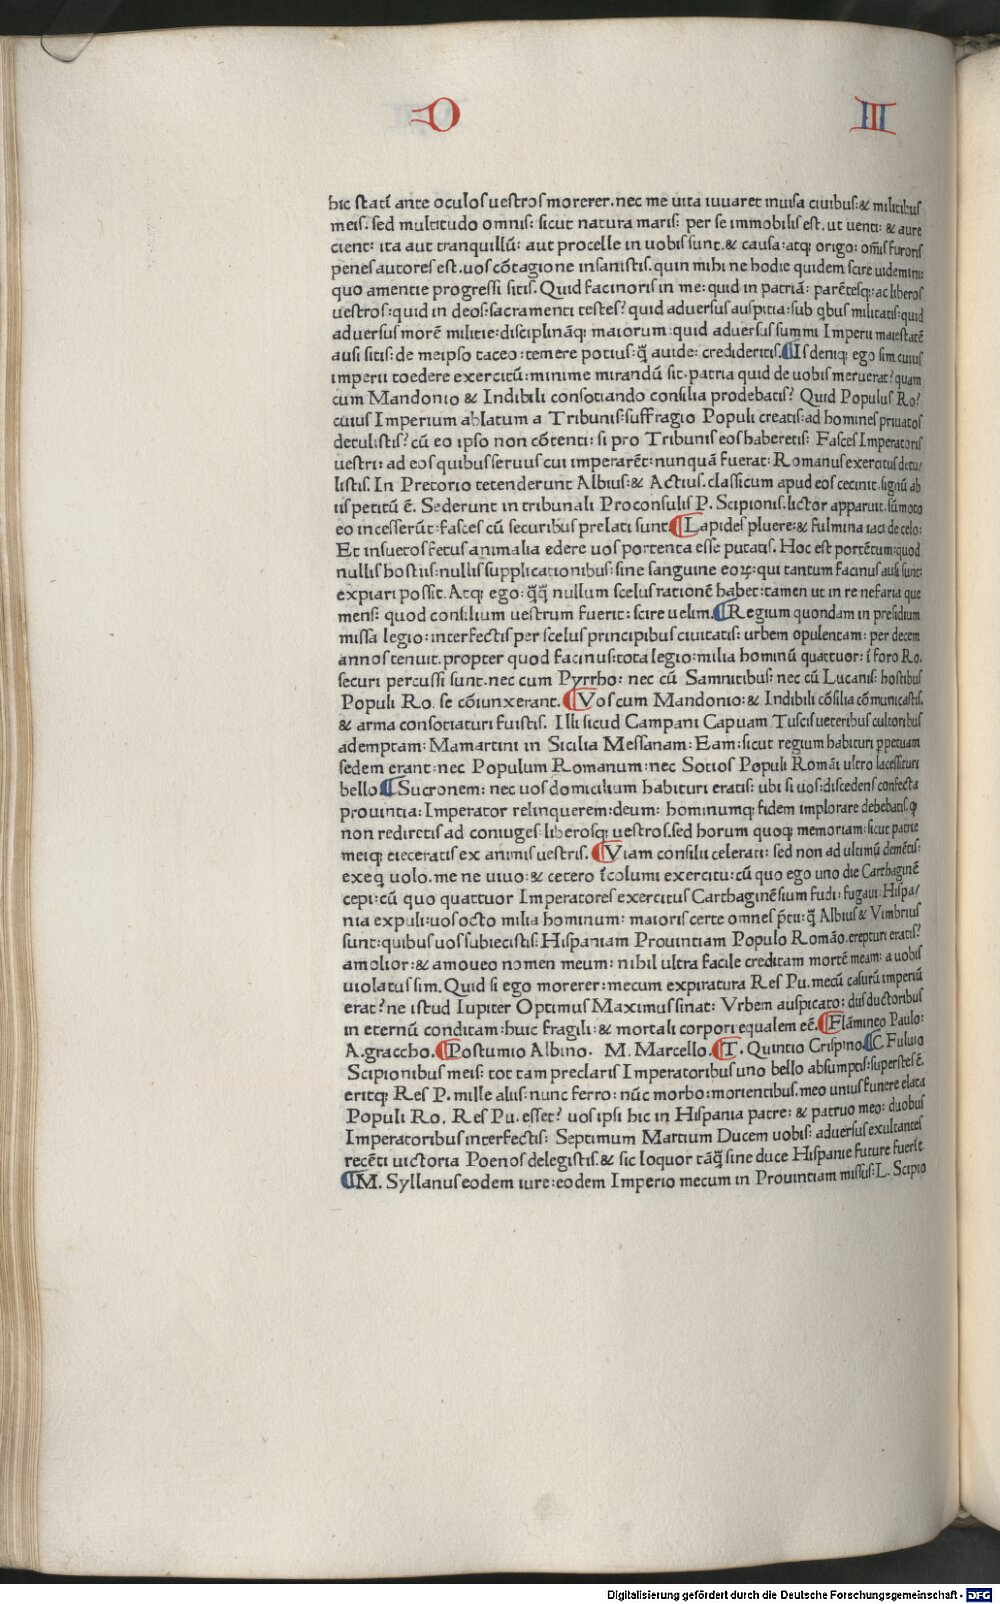 D III
hic statī ante oculos uestros morerer. nec me uita iuuaret inuisa ciuibus: & militibus
meis. sed multitudo omnis: sicut natura maris: per se immobilis est. ut uenti: & aure
cient: ita aut tranquillū: aut procelle in uobis sunt. & causa: atq; origo: oīs furoris
penes autores est. uos cōtagione insanistis. quin mihi ne hodie quidem scire uidemini:
quo amentie progressi sitis. Quid facinoris in me: quid in patriā: parētesq;: ac liberos
uestros: quid in deos: sacramenti testes? quid aduersus auspitia: sub qbus militatis: quid
aduersus morē militie: disciplināq; maiorum: quid aduersus summi Imperii maiestatē
ausi sitis: de meipso taceo: temere potius: q̄ auide: credideritis. ¶Is deniq; ego sim cuius
imperii toedere exercitū: minime mirandū sit. patria quid de uobis meruerat? quam
cum Mandonio & Indibili consotiando consilia prodebatis? Quid Populus Ro?
cuius Imperium ablatum a Tribunis: suffragio Populi creatis: ad homines priuatos
detulistis? cū eo ipso non cōtenti: si pro Tribunis eos haberetis: Fasces Imperatoris
uestri: ad eos quibus seruus cui imperarēt: nunquā fuerat: Romanus exercitus detu/
listis. In Pretorio tetenderunt Albius: & Actius. classicum apud eos cecinit. signū ab
iis petitū ē. Sederunt in tribunali Proconsulis P. Scipionis. lictor apparuit. sūmoto
eo incesserūt: fasces cū securibus prelati sunt. ¶Lapides pluere: & fulmina iaci de celo:
Et insuetos fetus animalia edere uos portenta esse putatis. Hoc est portētum: quod
nullis hostiis: nullis supplicationibus: sine sanguine eoꝝ: qui tantum facinus ausi sunt:
expiari possit. Atq; ego: q̄q̄ nullum scelus rationē habet: tamen ut in re nefaria que
mens: quod consilium uestrum fuerit: scire uelim. ¶Regium quondam in presidium
missa legio: interfectis per scelus principibus ciuitatis: urbem opulentam: per decem
annos tenuit. propter quod facinus: tota legio: milia hominū quattuor: ī foro Ro.
securi percussi sunt. nec cum Pyrrho: nec cū Samnitibus: nec cū Lucanis: hostibus
Populi Ro. se cōiunxerant. ¶Vos cum Mandonio: & Indibili cōsilia cōmunicastis.
& arma consotiaturi fuistis. Illi sicud Campani Capuam Tuscis ueteribus cultoribus
ademptam: Mamartini in Sicilia Messanam: Eam: sicut regium habituri ꝑpetuam
sedem erant: nec Populum Romanum: nec Sotios Populi Romāi ultro lacessituri
bello ¶Sucronem: nec uos domicilium habituri eratis: ubi si uos: discedens confecta
prouintia: Imperator relinquerem: deum: hominumq; fidem implorare debebatis. q
non rediretis ad coniuges: liberosq; uestros. sed horum quoq; memoriam: sicut patrie
meiq; eieceratis ex animis uestris. ¶Viam consilii celerati: sed non ad ultimū demētis:
exeq uolo. me ne uiuo: & cetero īcolumi exercitu: cū quo ego uno die Carthaginē
cepi: cū quo quattuor Imperatores exercitus Carthaginēsium fudi: fugaui: Hispa/
nia expuli: uos octo milia hominum: maioris certe omnes p̄tii: q̄ Albius & Vmbrius
sunt: quibus uos subiecistis: Hispaniam Prouintiam Populo Romāo. erepturi eratis?
amolior: & amoueo nomen meum: nihil ultra facile creditam mortē meam: a uobis
uiolatus sim. Quid si ego morerer: mecum expiratura Res Pu. mecū casurū imperiū
erat? ne istud Iupiter Optimus Maximus sinat: Vrbem auspicato: diis ductoribus
in eternū conditam: huic fragili: & mortali corpori equalem eē. ¶Flāmineo Paulo:
A. graccho. ¶Postumio Albino. M. Marcello. ¶T. Quintio Crispino ¶C. Fuluio
Scipionibus meis: tot tam preclaris Imperatoribus uno bello absumptis: superstes ē.
eritq; Res P. mille aliis: nunc ferro: nūc morbo: morientibus. meo unius funere elata
Populi Ro. Res Pu. esset? uos ipsi hic in Hispania patre: & patruo meo: duobus
Imperatoribus interfectis: Septimum Martium Ducem uobis: aduersus exultantes
recēti uictoria Poenos delegistis. & sic loquor tāq̄ sine duce Hispanie future fuerīt.
¶M. Syllanus eodem iure: eodem Imperio mecum in Prouintiam missus: L. Scipio
Digitalisierung gefördert durch die Deutsche Forschungsgemeinschaft - DFG